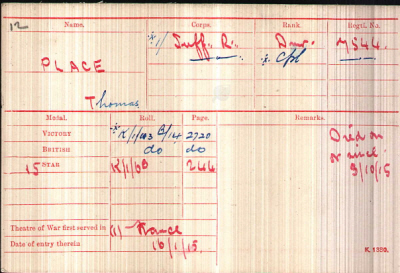 Name. Corps. Rank. Regtl. No.
12 *1/ Suff. R. Dmr. 7544.
PLACE * Cpl
Thomas
Medal. Roll. Page. Remarks.
VICTORY *K/1/103 B/14 2720 Died on
BRITISH do do or since
15 STAR K/1/6B 244 3/10/15
Theatre of War first served in (1) France
Date of entry therein 16/1/15.
K 1380.